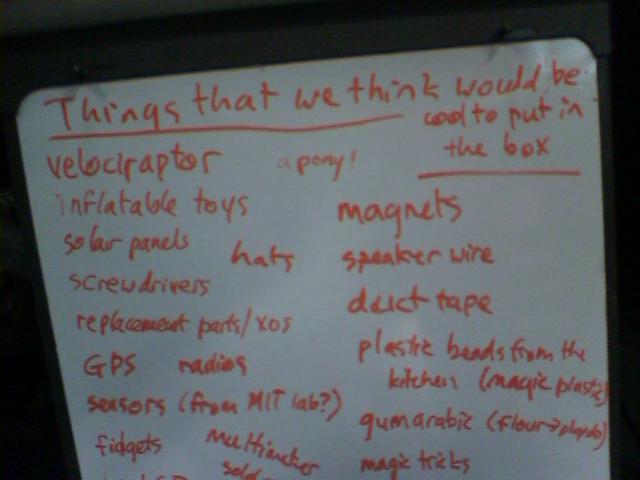 Things that we think would be
cool to put in
the box
velociraptor
a pony!
inflatable toys
magnets
solar panels
hats
speaker wire
screwdrivers
duct tape
replacement parts/XOs
plastic beads from the
kitchen (magic plastic)
GPS radios
sensors (from MIT lab?)
gum arabic (flour→playdo)
fidgets
multimeter
magic tricks